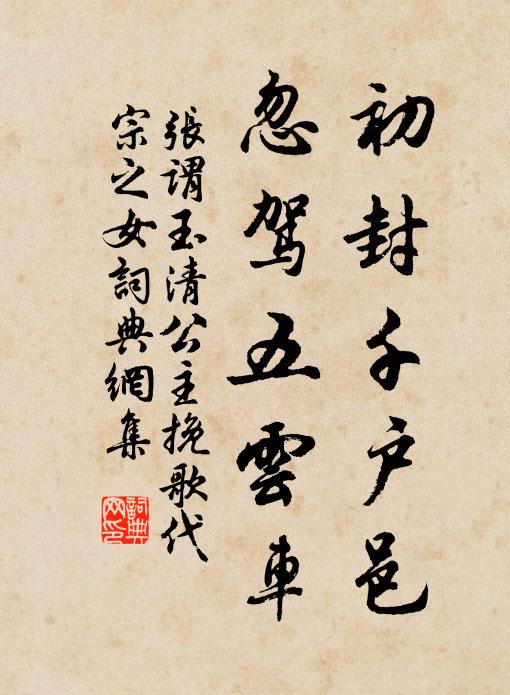 初封千户邑
忽驾五雲車
張謂玉清公主挽歌代
宗之女詞典網集
詞典网印